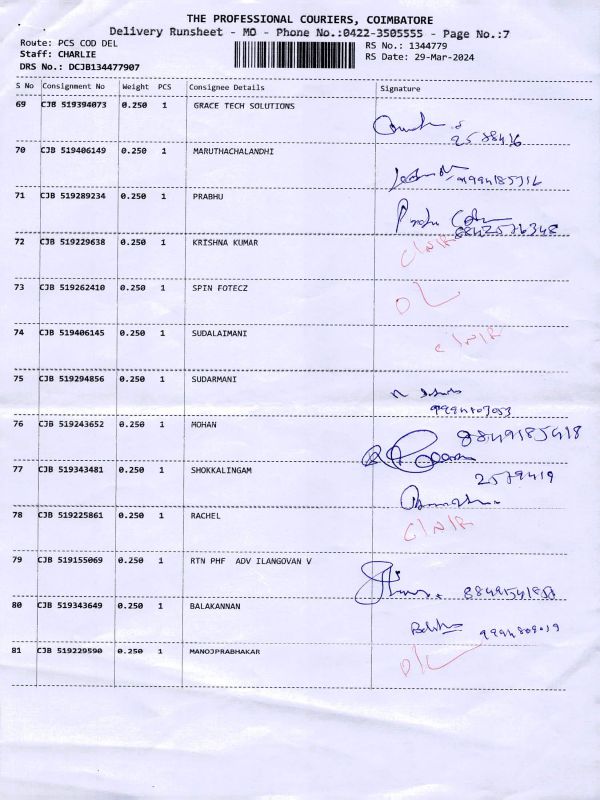 THE PROFESSIONAL COURIERS, COIMBATORE
Delivery Runsheet - MO - Phone No.:0422-3505555 - Page No.:7
Route: PCS COD DEL RS No.: 1344779
Staff: CHARLIE RS Date: 29-Mar-2024
DRS No.: DCJB134477907
S No Consignment No Weight PCS Consignee Details Signature
69 CJB 519394073 0.250 1 GRACE TECH SOLUTIONS
70 CJB 519406149 0.250 1 MARUTHACHALANDHI
71 CJB 519289234 0.250 1 PRABHU
72 CJB 519229638 0.250 1 KRISHNA KUMAR
73 CJB 519262410 0.250 1 SPIN FOTECZ
74 CJB 519406145 0.250 1 SUDALAIMANI
75 CJB 519294856 0.250 1 SUDARMANI
76 CJB 519243652 0.250 1 MOHAN
77 CJB 519343481 0.250 1 SHOKKALINGAM
2579419
78 CJB 519225861 0.250 1 RACHEL
79 CJB 519155069 0.250 1 RTN PHF ADV ILANGOVAN V
80 CJB 519343649 0.250 1 BALAKANNAN
81 CJB 519229590 0.250 1 MANOJPRABHAKAR